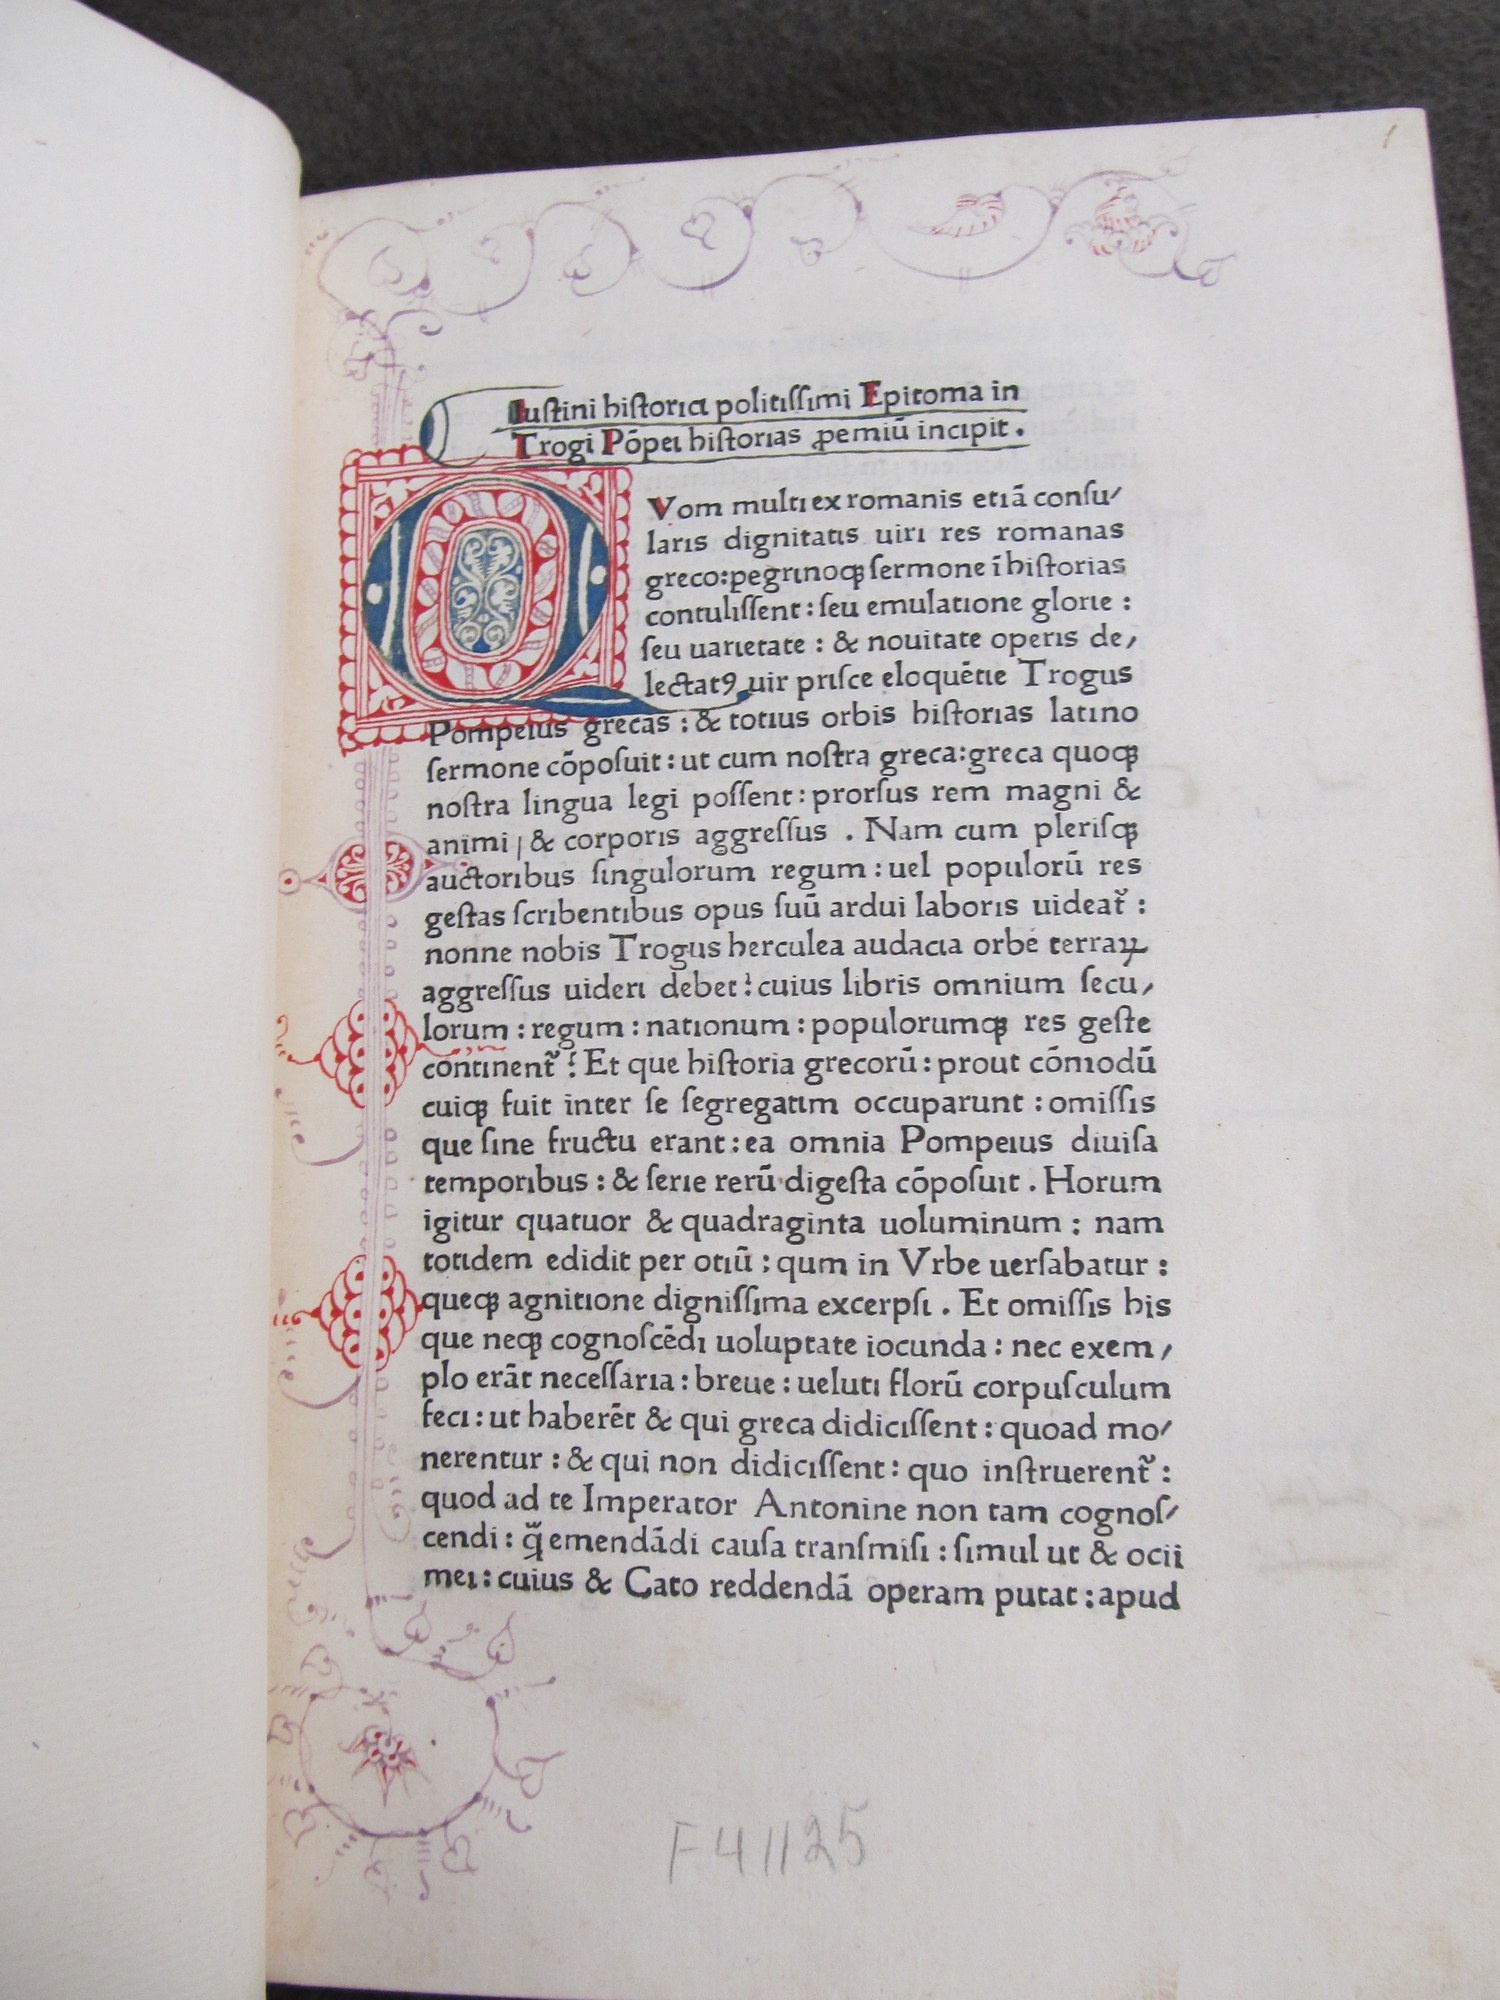 1
Iustini historici politissimi Epitoma in
Trogi Põpei historias ꝓemiũ incipit .
QVom multi ex romanis etiã consu/
laris dignitatis uiri res romanas
greco: pegrinoqꝫ sermone ĩ historias
contulissent : seu emulatione glorie :
seu uarietate : & nouitate operis de/
lectatꝰ uir prisce eloquẽtie Trogus
Pompeius grecas : & totius orbis historias latino
sermone cõposuit : ut cum nostra greca: greca quoqꝫ
nostra lingua legi possent : prorsus rem magni &
animi / & corporis aggressus . Nam cum plerisqꝫ
auctoribus singulorum regum : uel populorũ res
gestas scribentibus opus suũ ardui laboris uideat̃ :
nonne nobis Trogus herculea audacia orbẽ terraꝝ
aggressus uideri debet : cuius libris omnium secu/
lorum : regum : nationum : populorumqꝫ res geste
continent̃ : Et que historia grecorũ : prout cõmodũ
cuiqꝫ fuit inter se segregatim occuparunt : omissis
que sine fructu erant : ea omnia Pompeius diuisa
temporibus : & serie rerũ digesta cõposuit . Horum
igitur quatuor & quadraginta uoluminum : nam
totidem edidit per otiũ : qum in Vrbe uersabatur :
queqꝫ agnitione dignissima excerpsi . Et omissis his
que neqꝫ cognoscẽdi uoluptate iocunda : nec exem/
plo erãt necessaria : breue : ueluti florũ corpusculum
feci : ut haberẽt & qui greca didicissent : quoad mo/
nerentur : & qui non didicissent : quo instruerent̃ :
quod ad te Imperator Antonine non tam cognos/
cendi : q̃ emendãdi causa transmisi : simul ut & ocii
mei : cuius & Cato reddendã operam putat : apud
F41125